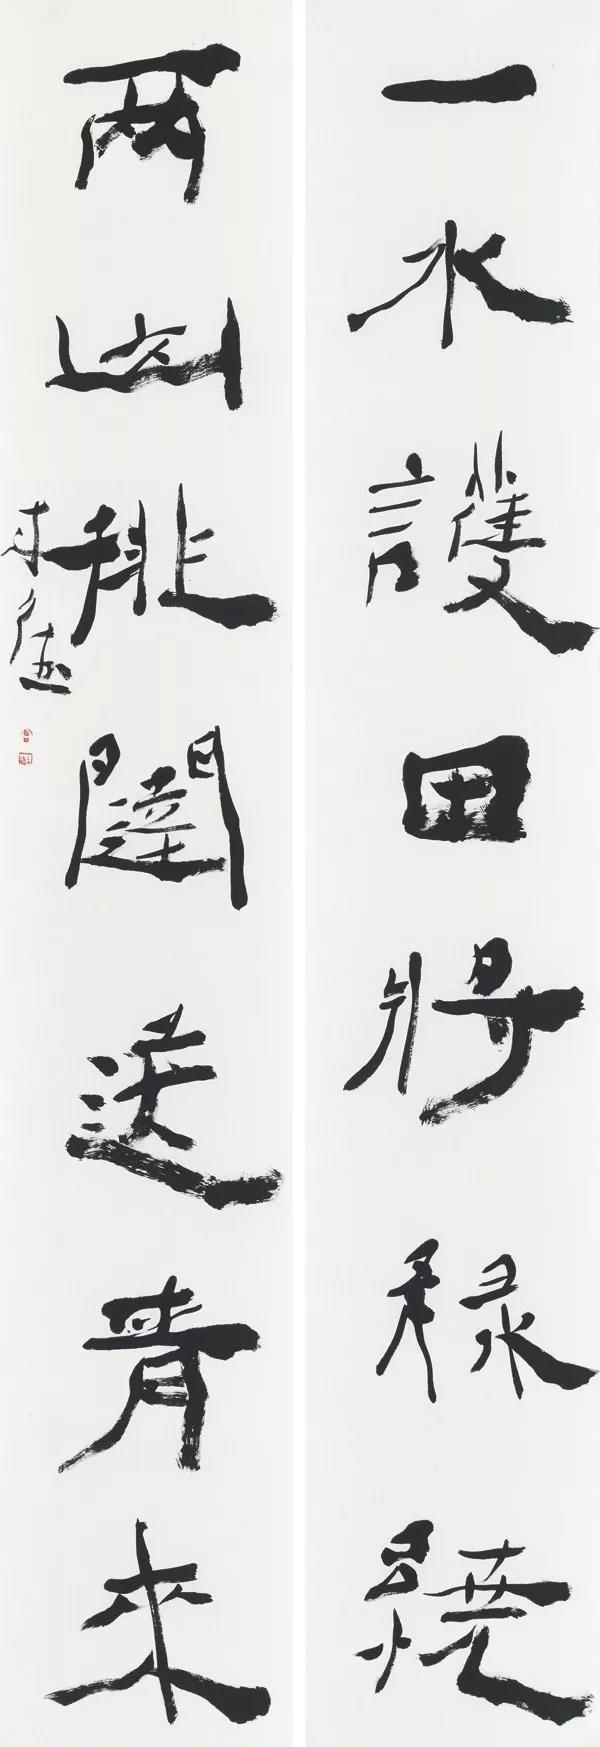 一水護田將綠繞
兩山排闥送青來